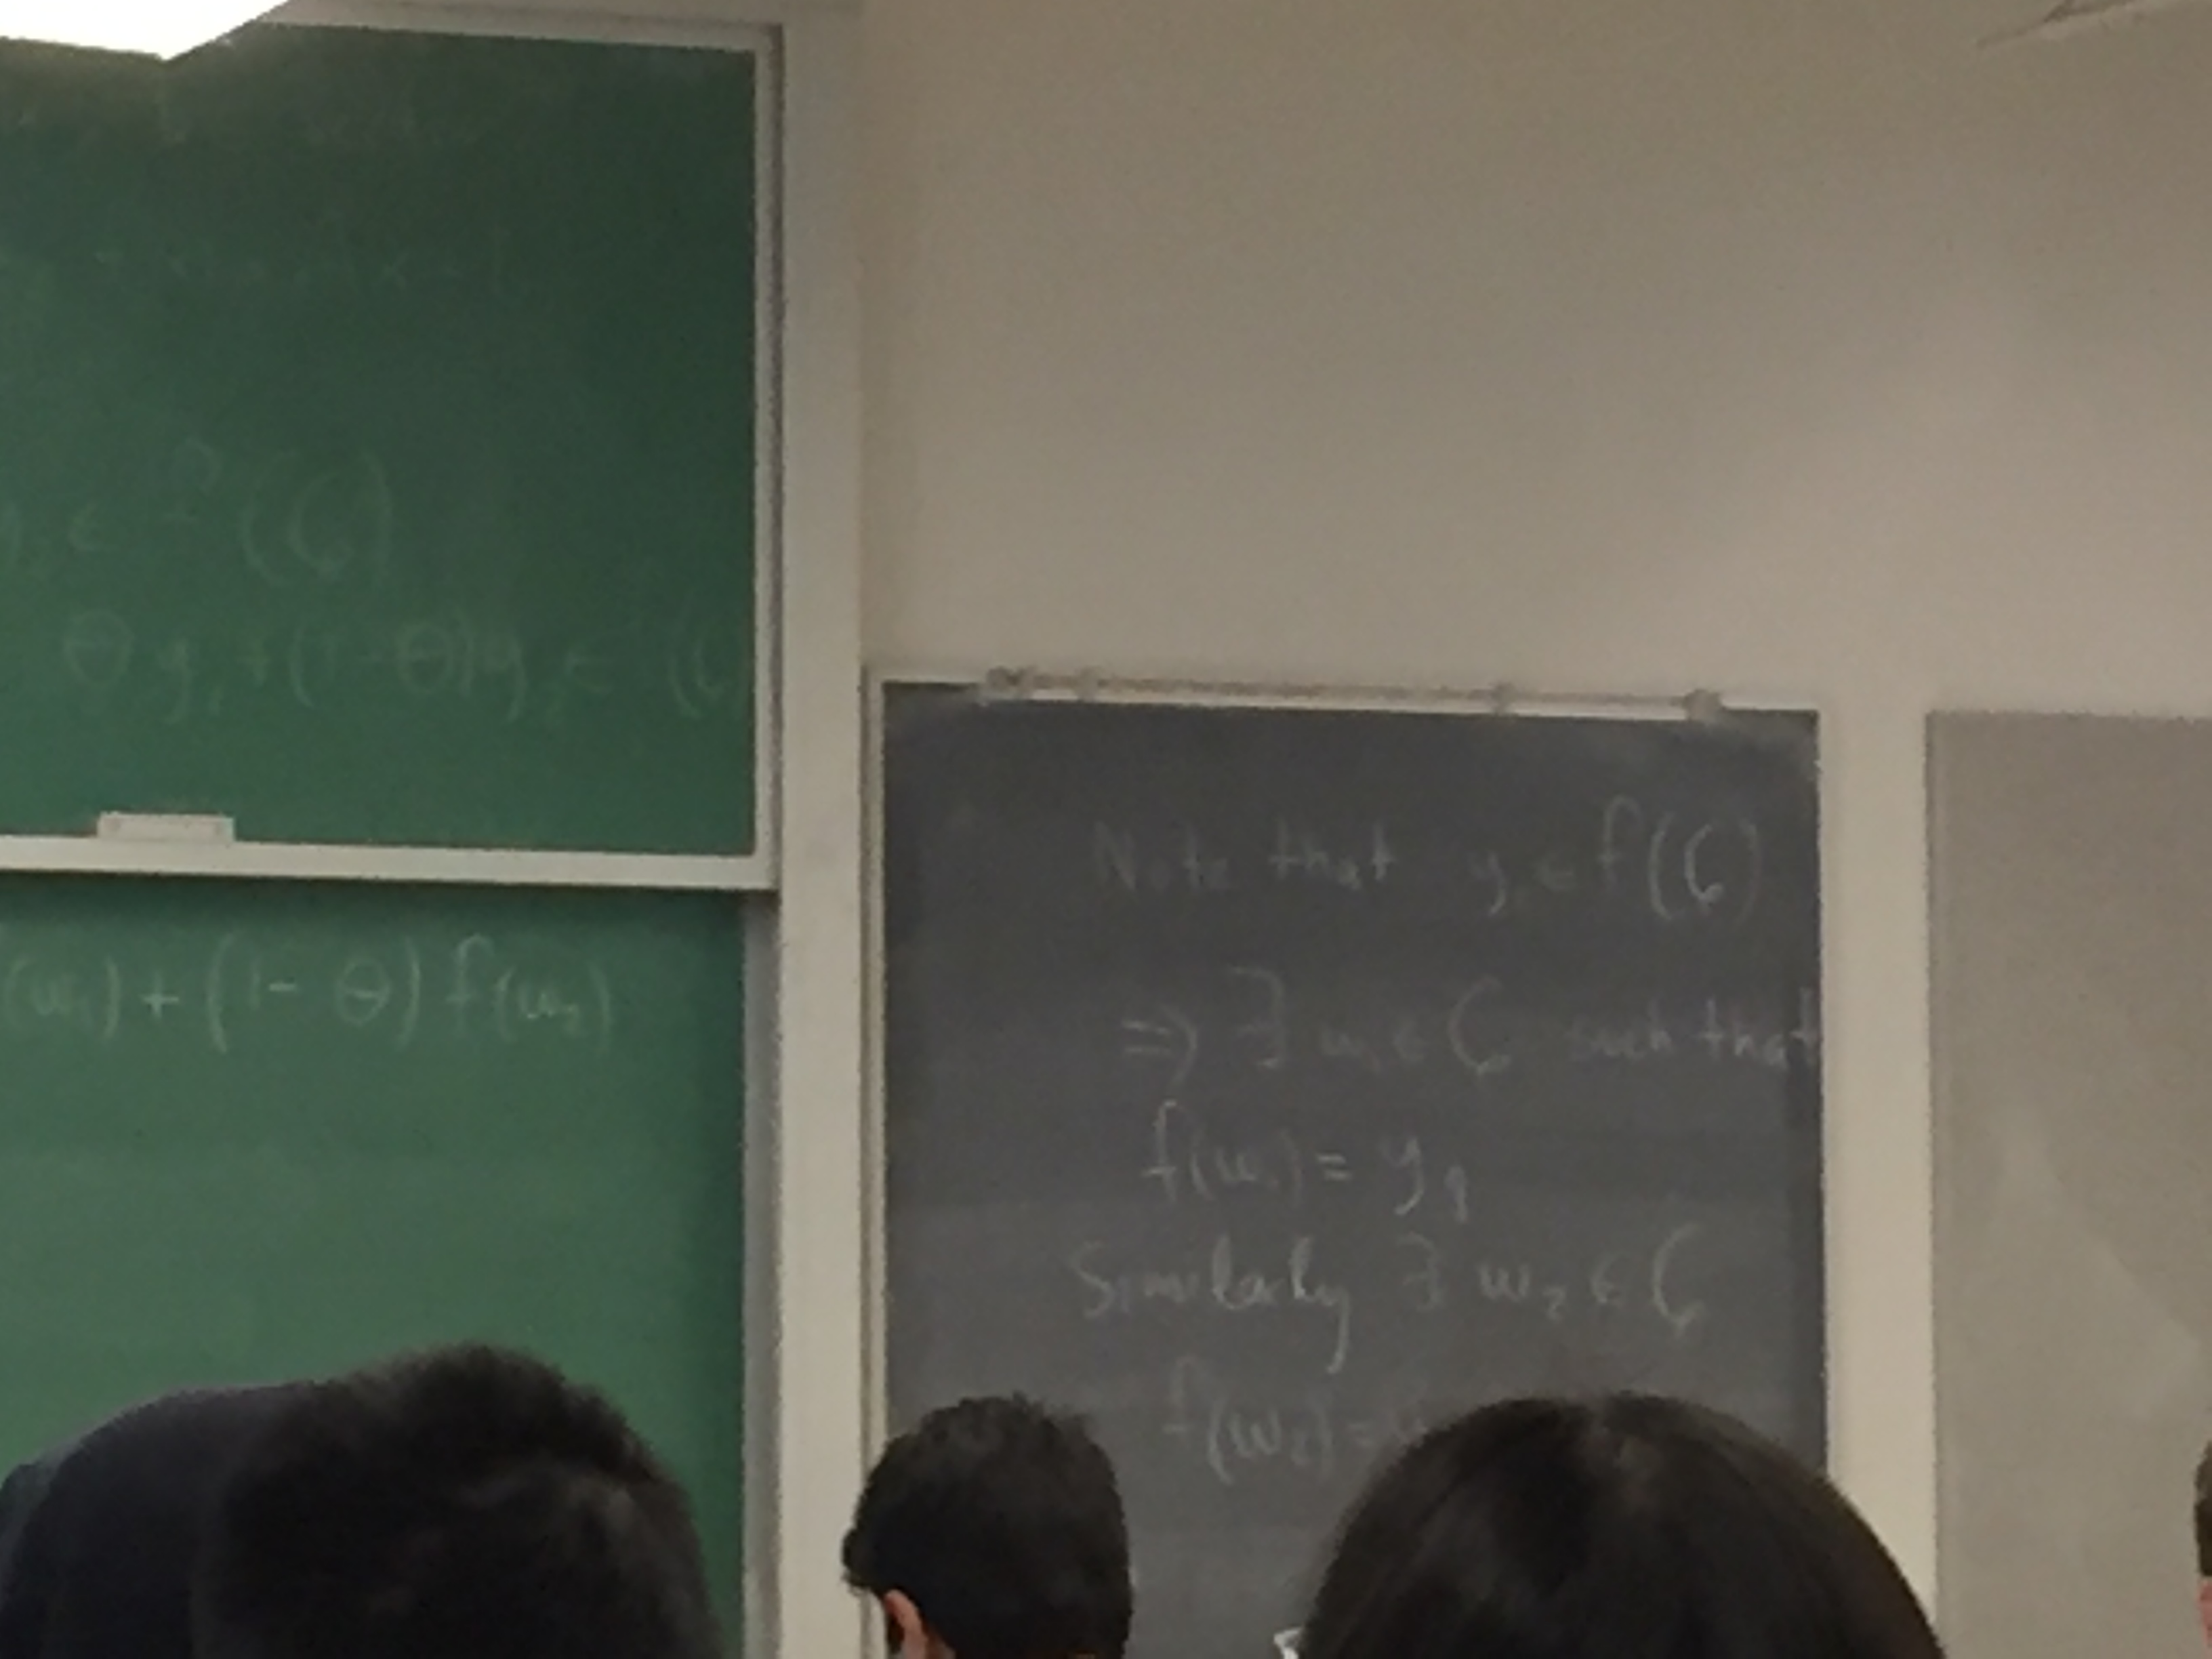 ∈ f(C)
θy₁+(1-θ)y₂ ∈ (C
(w₁) + (1- θ) f(w₂)
Note that y₁ ∈ f(C)
⇒ ∃ w₁ ∈ C such that
f(w₁) = y₁
Similarly ∃ w₂ ∈ C
f(w₂) =